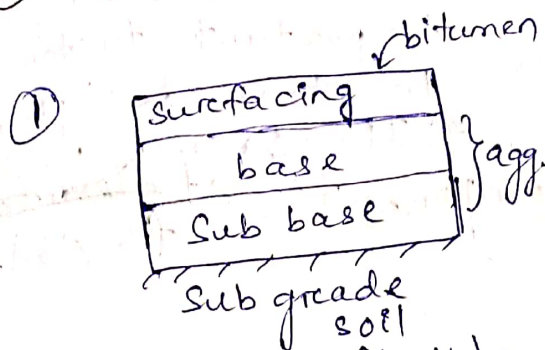 bitumen
①
surfacing
base
agg.
Sub base
Sub grade
soil